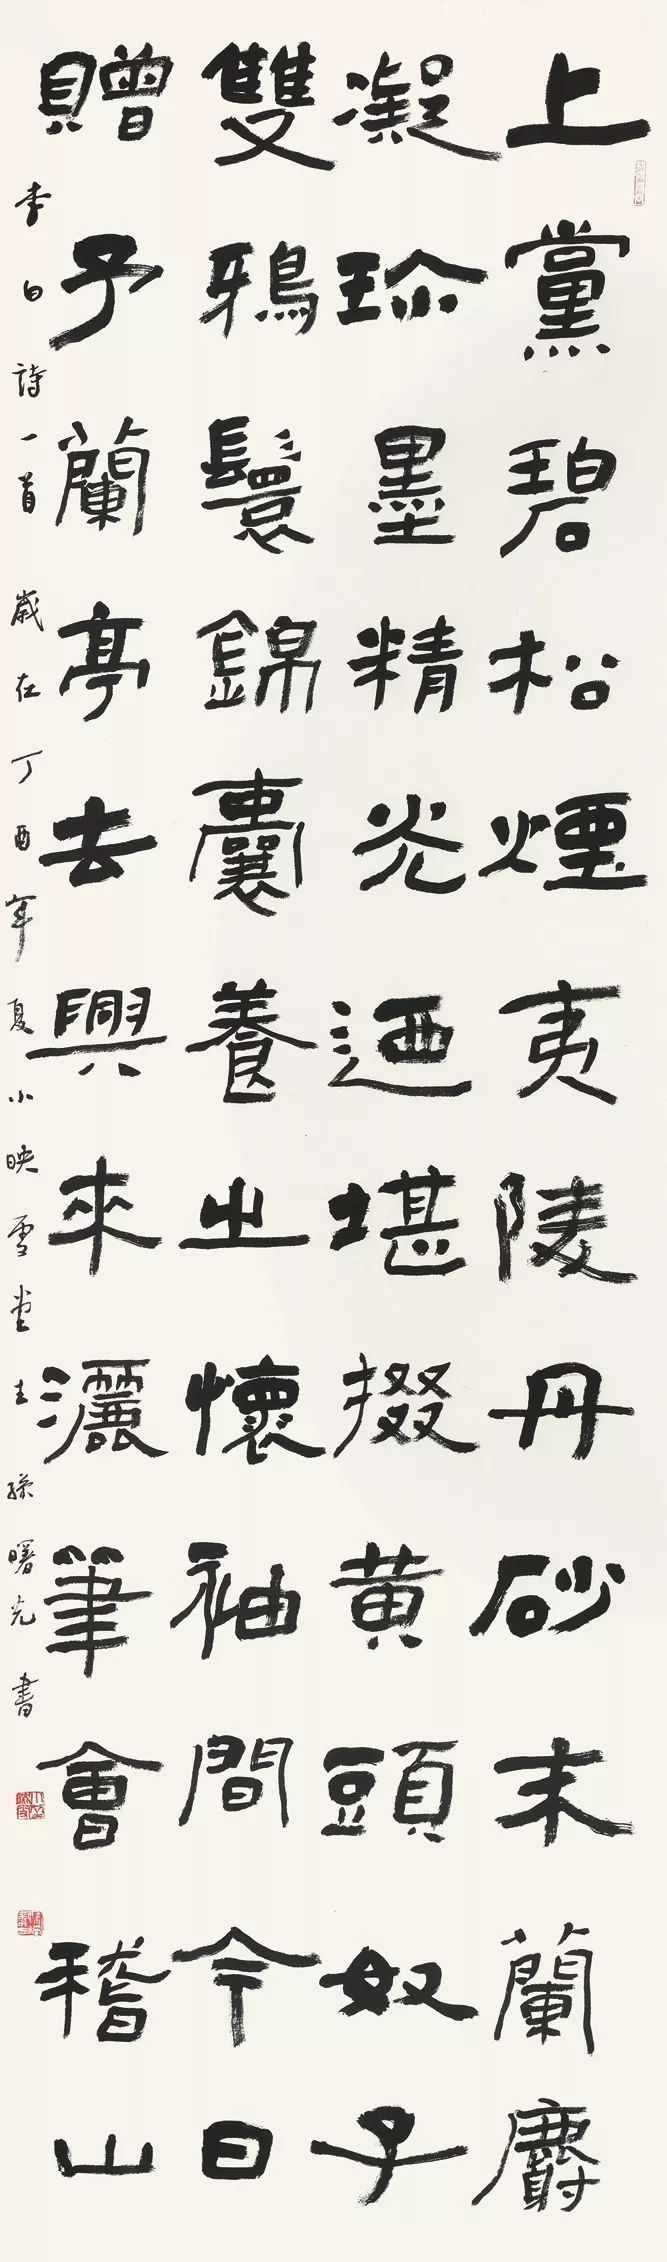 上黨碧松煙夷陵丹砂末蘭麝
凝珎墨精光迺堪掇黄頭奴子
雙鴉鬟錦囊養之懷袖間今日
贈予蘭亭去興來灑筆會稽山
李白詩一首歲在丁酉年夏小映雪堂主孫曙光書